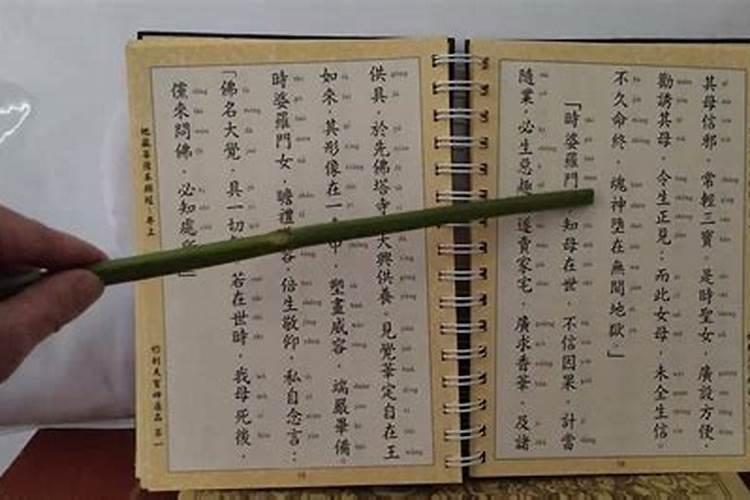 其母信邪，常輕三寶。是時聖女，廣設方便，
勸誘其母，令生正見；而此女母，未全生信。
不久命終，魂神墮在無間地獄。」
「時婆羅門知母在世，不信因果，計當
隨業，必生惡趣。遂賣家宅，廣求香華，及諸
供具，於先佛塔寺，大興供養。見覺華定自在王
如來，其形像在一中，塑畫威容，端嚴畢備。
時婆羅門女，瞻禮容，倍生敬仰。私自念言：
「佛名大覺，具一切若在世時，我母死後，
儻來問佛，必知處」
地藏菩薩本願經．卷上
忉利天宮神通品 第一